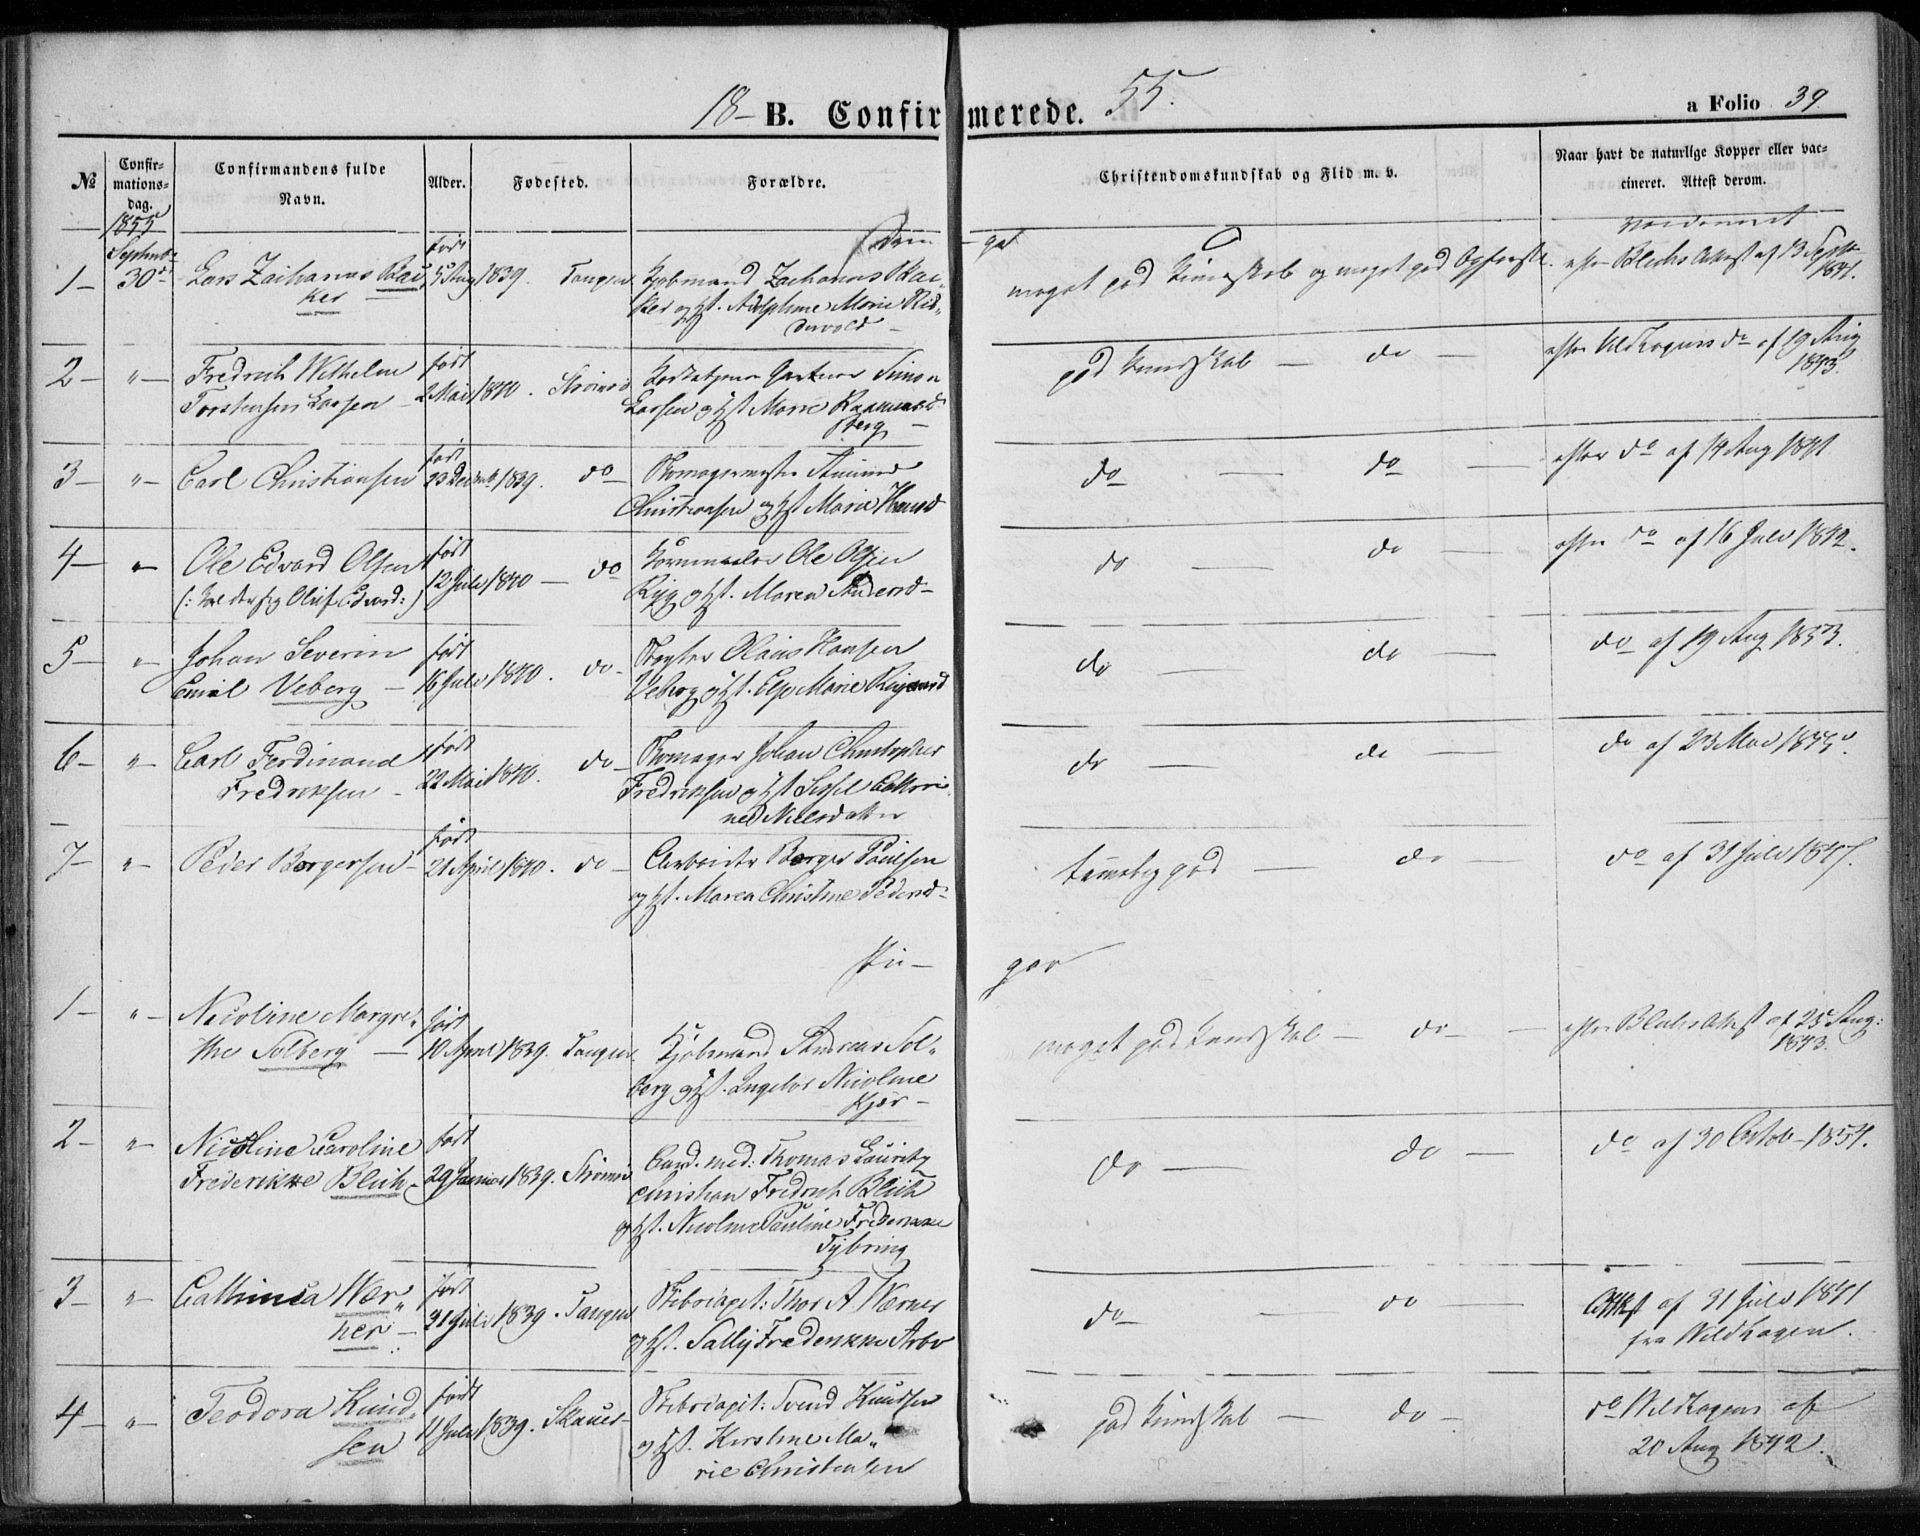 18- B. Confirmerede. 55. a Folio 39
№ Confir-mations-dag. Confirmandens fulde Navn. Alder. Fødested. Forældre. Christendomskundskab og Flid m. v. Naar havt de naturlige Kopper eller vac-cineret. Attest derom.
1855
Dren- ge
1- September 30d. Lars Zacharias født 5 Aug 1839. Tangen Kjøbmand Zacharias
ker og Hst. Adolphine Marie Rid-
dervold -
meget god Kundskab og meget god Opførsel. efter Blichs Attest af 13 Septbr
1841.
2- "- Fredrich Wilhelm født
Torstensen Larsen - 2 Mai 1840. Strømsø Gartner Simon
Larsen og Hst. Maren
berg -
god Kundskab - do - efter Wildhagens do af 19 Aug
1843.
3- "- Carl Christiansen født 23 Decemb. 1839. do Skomagermester
Christiansen og Hst Maria
do - do - efter do af 14 Aug 1841
4- "- Ole Edvard Olsen født
(: Oluf Edvard:) 12 Juli 1840 - do Ole Olsen
Ryg og Hst. Maren
do - do - efter do af 16 Juli 1842.
5- "- Johan Severin født
Emil Veberg - 16 Juli 1840. do - Olaus Hansen
Veberg og Hst. Else Marie
do - do - do af 19 Aug 1853.
6- "- Carl Ferdinand født
Fredriksen - 22 Mai 1840. do - Skomager Johan Christopher
Fredriksen og Hst Sissel Cathri-
ne Nielsdatter
do - do - do af 23 Mai 1855.
7- "- Peder Borgersen - født
21 April 1840. do - Arbeider Borger Paulsen
og Hst. Maren Christine Pedersd-
temmelig god - do - do af 31 Juli
Pi- ger
1- "- Nicoline Margre- født
the Solberg - 10 April 1839. Tangen Kjøbmand Andreas Sol-
berg og Hst. Ingebor Nicoline
Kjær -
meget god Kundskab - do - efter Blichs Attest af 25 Aug:
1843.
2- "- Nicoline Caroline født
Frederikke Blich - 29 Januar 1839. Strømsø Cand. med: Thomas Lauritz
Christian Fredrich Blich
og Hst. Nicoline Pauline Frederikke
Tybring
do - do - do af 30 Octob- 1854.
3- "- Cathinca Wær- født
ner - 21 Juli 1839. Tangen Skibscapt: Thor A. Wærner
og Hst. Sally Frederikke Arbo
do - do - Attest af 31 Juli 1841
fra Wildhagen.
4- "- Teodora Knud- født
sen 11 Juli 1839. Skibscapit: Svend Knudsen
og Hst. Kirstine Ma-
rie Christensen
god Kundskab - do - do Wildhagens af
20 Aug 1842.